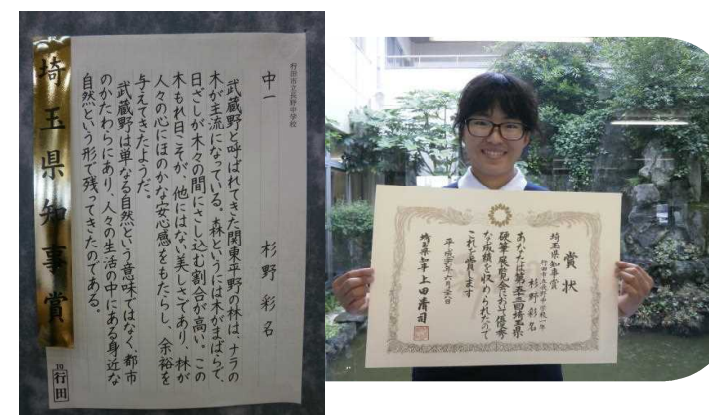 埼玉県知事賞
行田市立長野中学校
中一
杉野彩名
武蔵野と呼ばれてきた関東平野の林は、ナラの
木が主流になっている。森というには木がまばらで、
日ざしが木々の間にさし込む割合が高い。この
木もれ日こそが、他にはない美しさであり、林が
人々の心にほのかな安心感をもたらし、余裕を
与えてきたようだ。
武蔵野は単なる自然という意味ではなく、都市
のかたわらにあり、人々の生活の中にある身近な
自然という形で残ってきたのである。
行田
賞状
埼玉県知事賞
行田市立長野中学校一年
杉野彩名
あなたは第五十三回埼玉県
硬筆展覧会において優秀
な成績を収められたので
これを賞します
埼玉県知事 上田清司